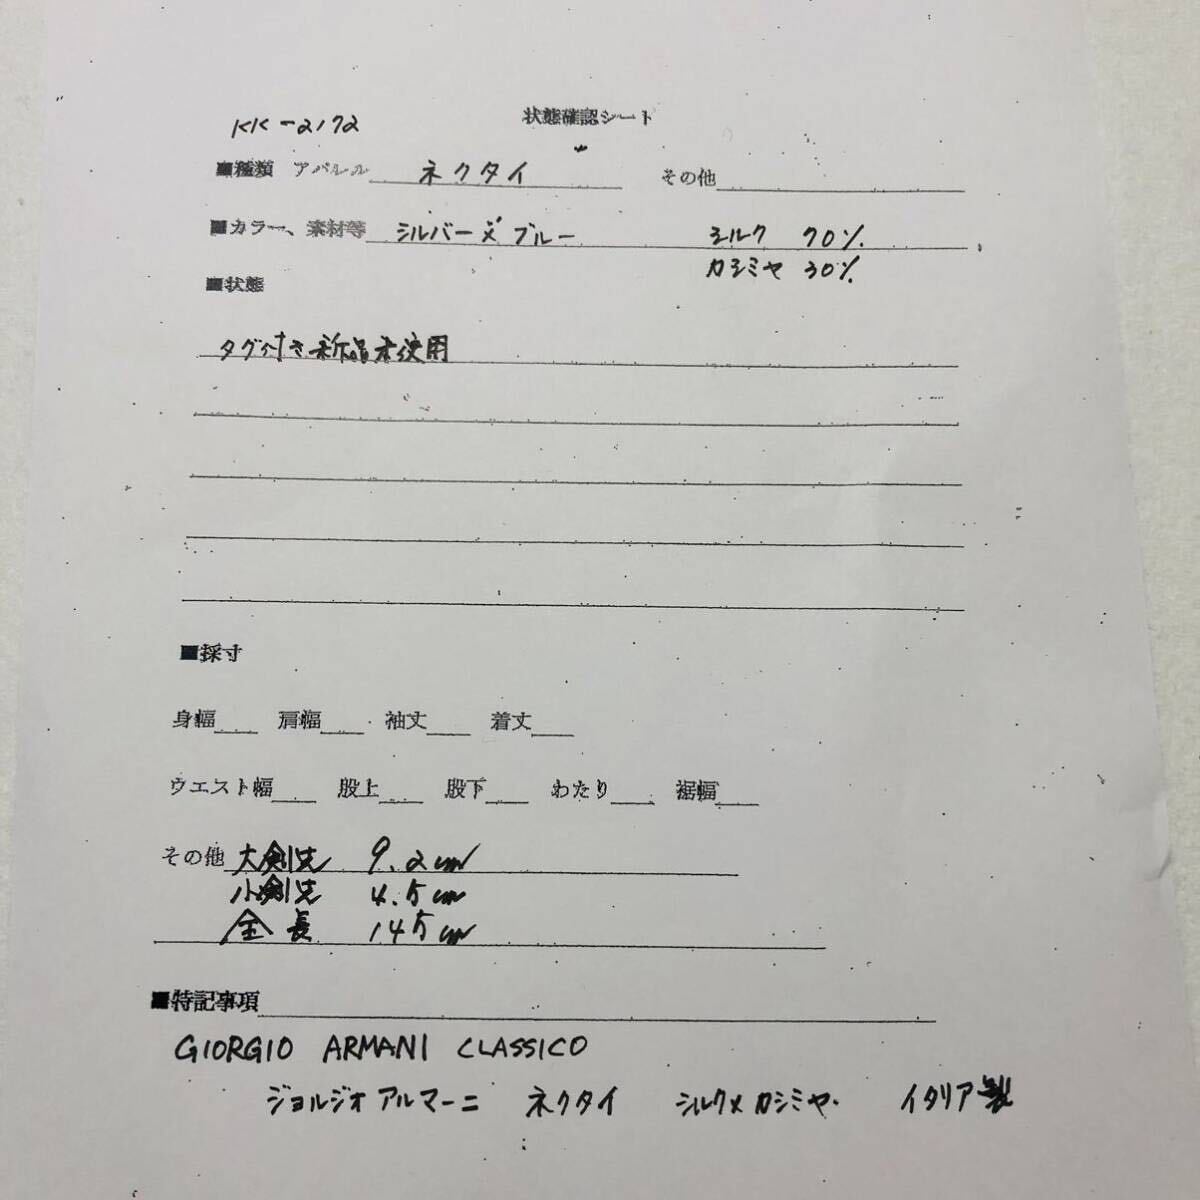 状態確認シート
KK-2172
■種類 アパレル ネクタイ その他
■カラー、素材等 シルバー×ブルー シルク 70%
カシミヤ 30%
■状態
タグ付き新品未使用
■採寸
身幅 肩幅 袖丈 着丈
ウエスト幅 股上 股下 わたり 裾幅
その他 大剣先 9.2cm
小剣先 4.5cm
全長 145cm
■特記事項
GIORGIO ARMANI CLASSICO
ジョルジオアルマーニ ネクタイ シルク×カシミヤ イタリア製